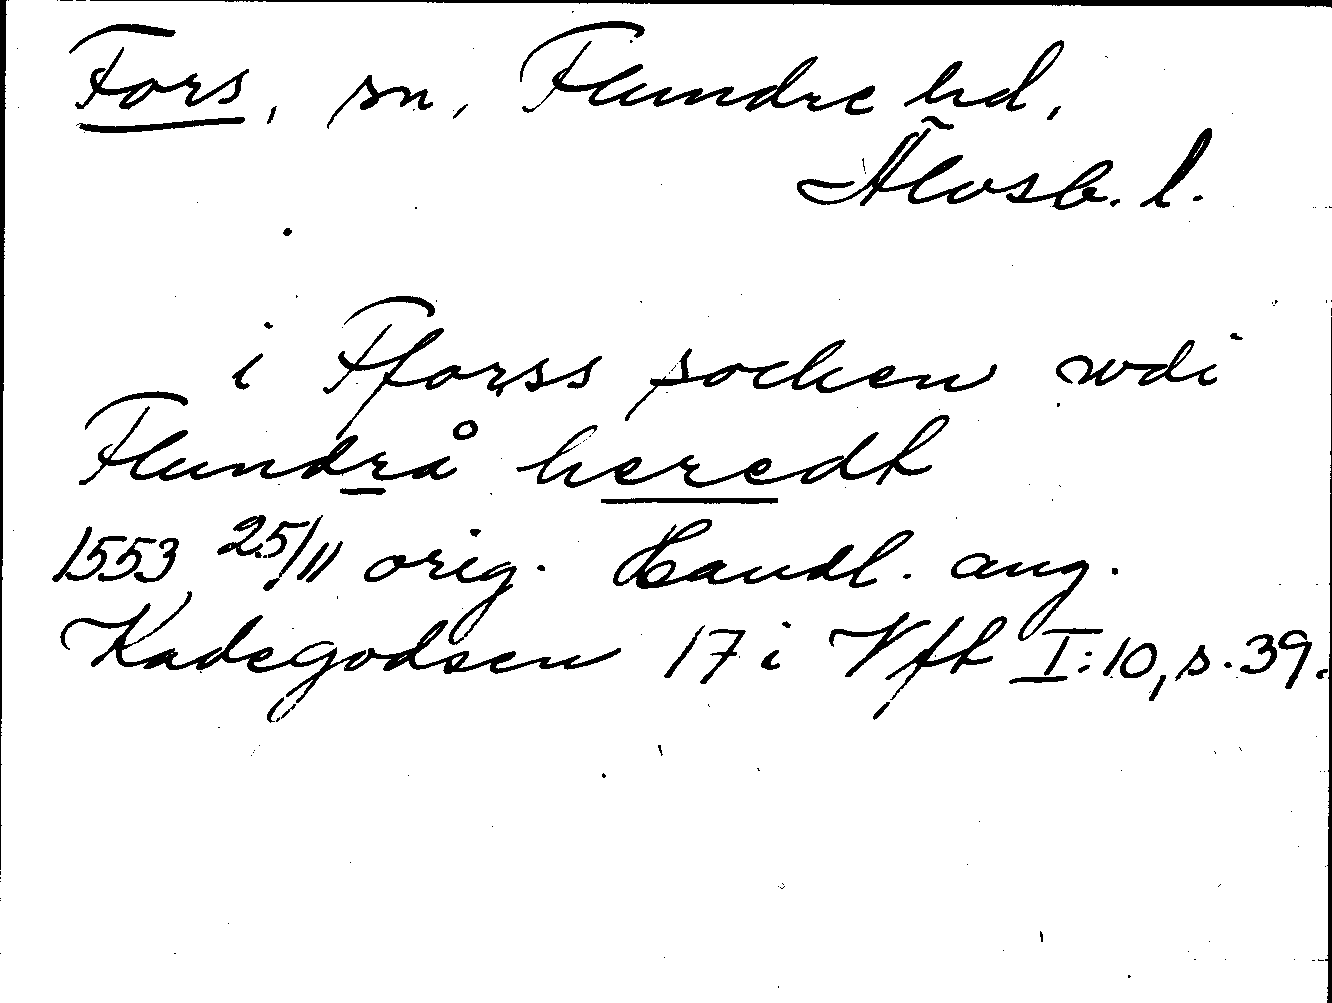 Fors, sn, Flundre hd,
Älvsb. l.
i Fforss socken wdi
Flundrå heredt
1553 25/11 orig. Handl. ang.
Kadegodsen 17 i Vfk I:10, s. 39.